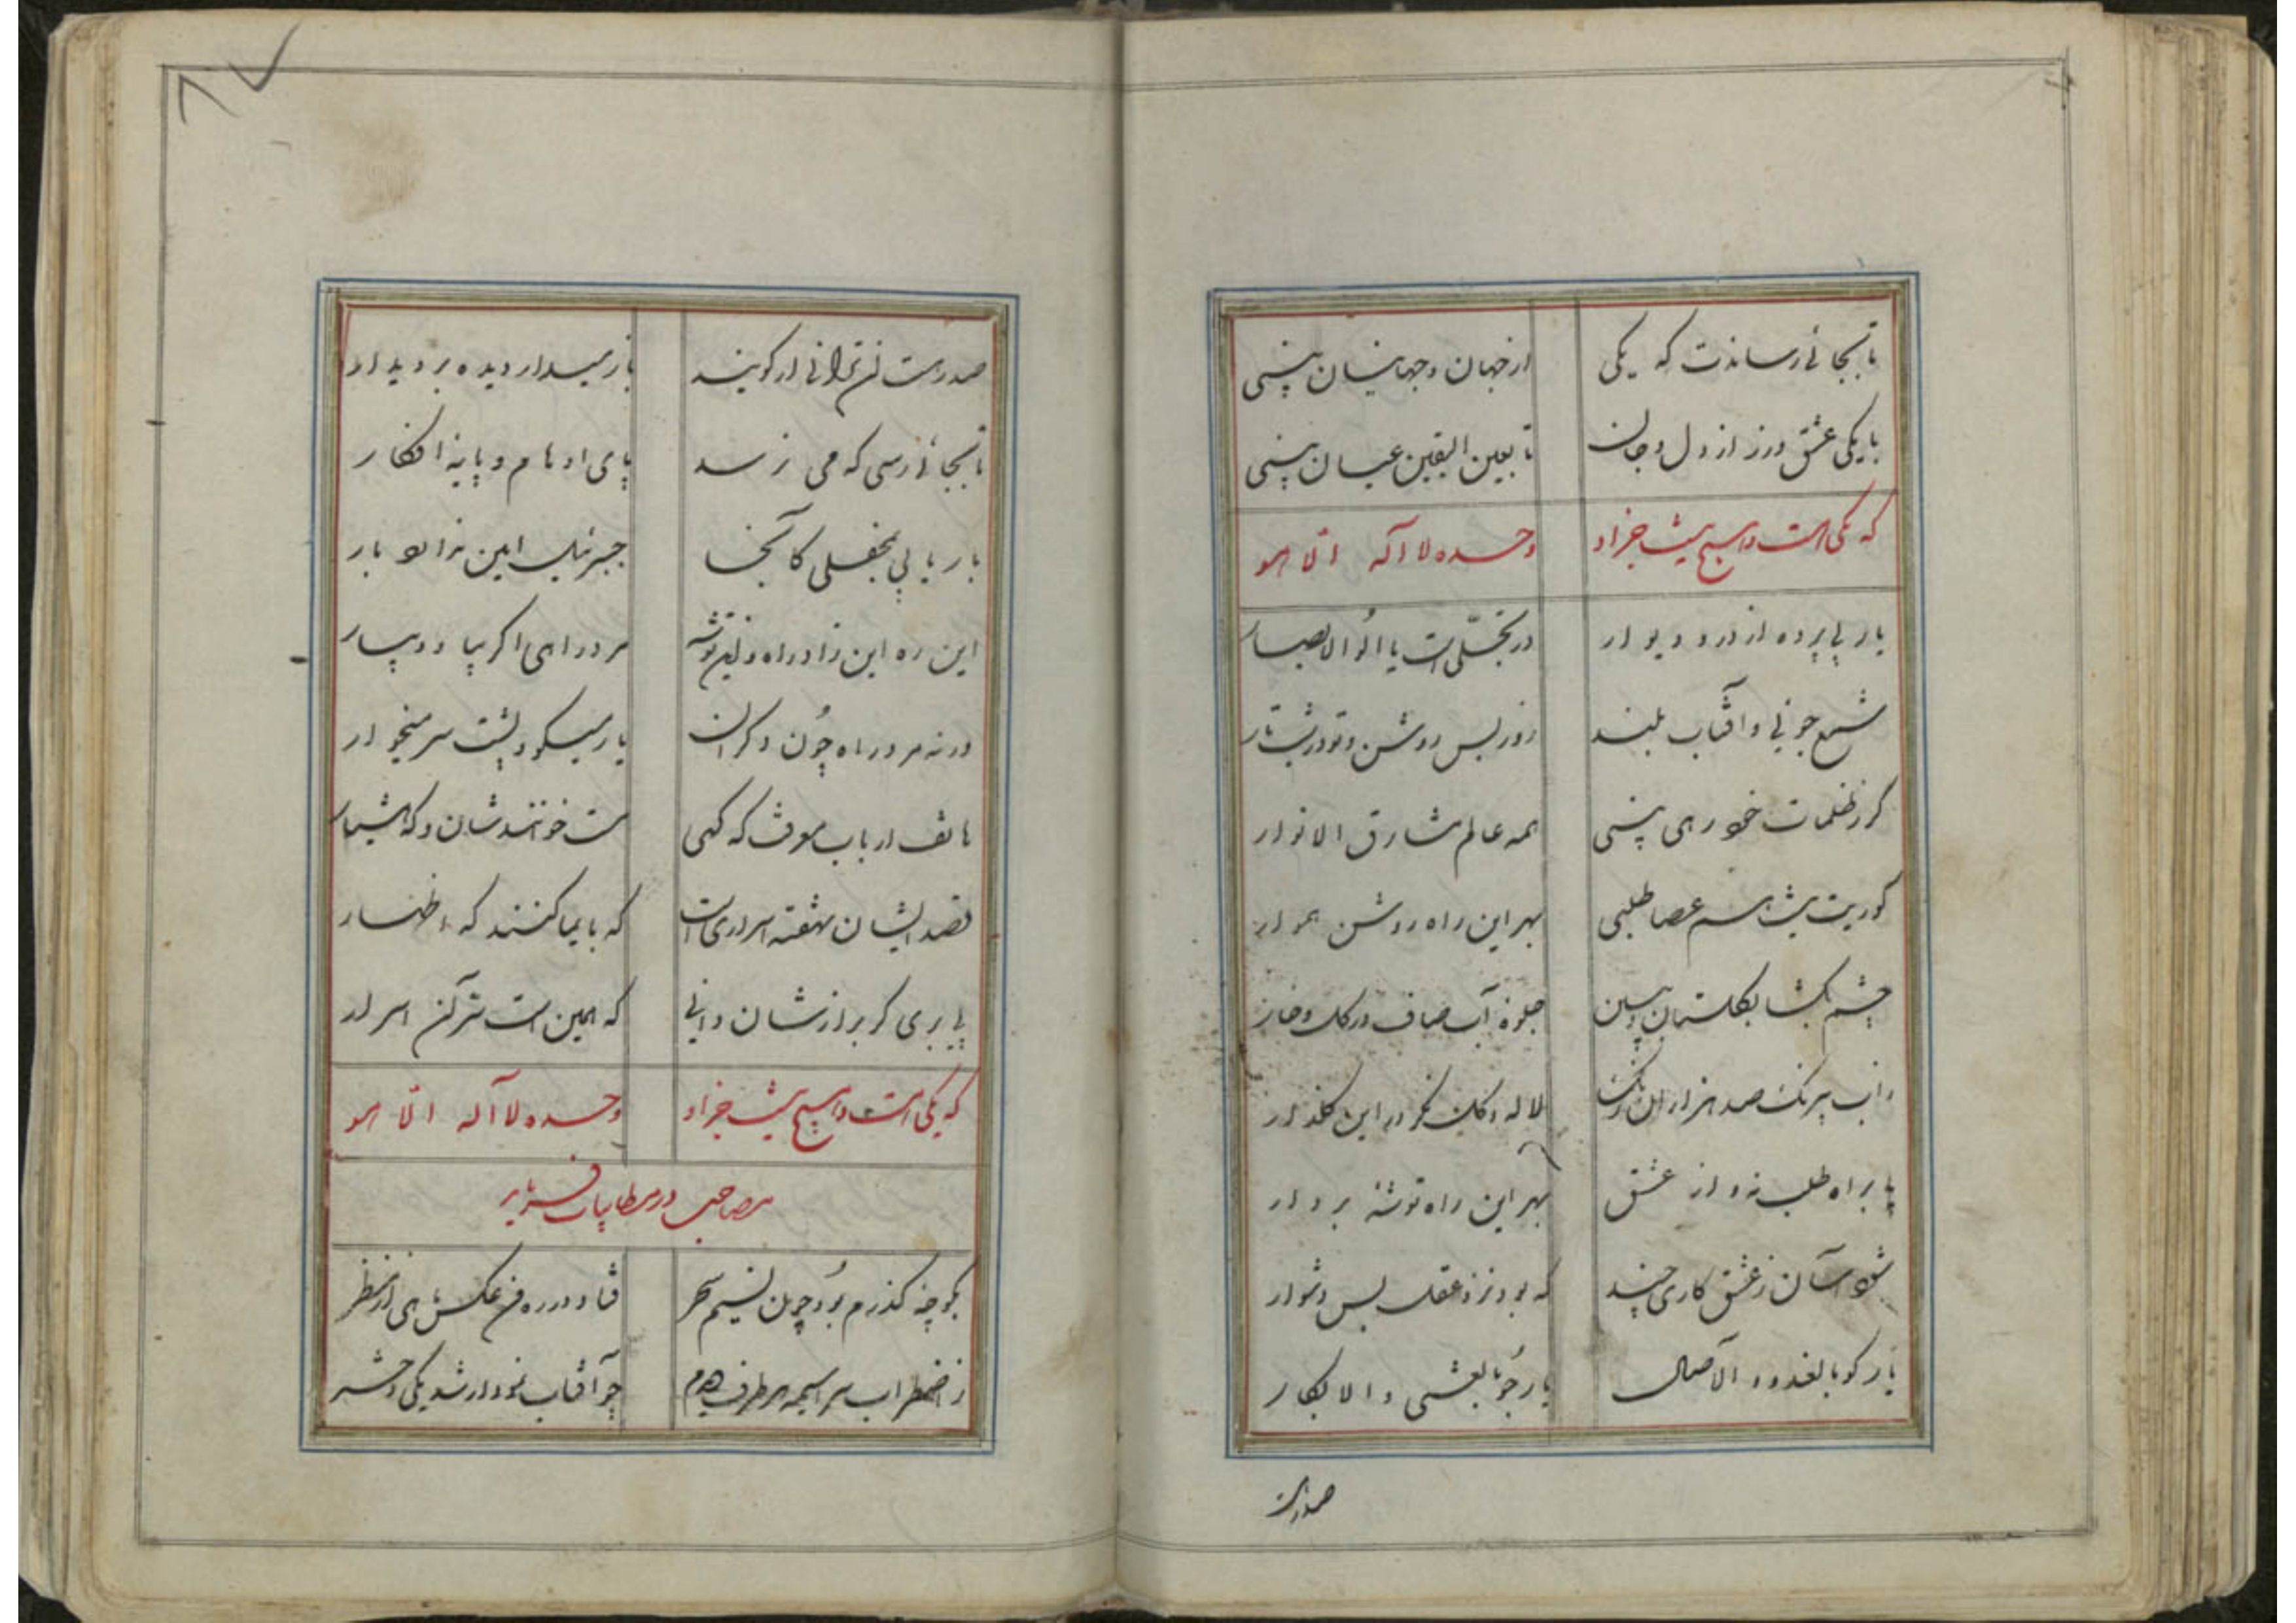 تا بجائی رساندت که یکی از جهان و جهانیان بینی
با یکی عشق ورز از دل و جان تا بعین الیقین عیان بینی
که یکی است و هیچ نیست جز او وحده لا اله الا هو
یار بی پرده از در و دیوار در تجلی است یا اولوا الابصار
شمع جوئی و آفتاب بلند روز بس روشن و تو در شب تار
گر ز ظلمات خود رهی بینی همه عالم مشارق الانوار
کوریت پیشه هم عصا طلبی بهر این راه روشن هموار
چشم بگشا بگلستان و ببین جلوه آب صاف در گل و خار
زاب بیرنگ صد هزاران رنگ لاله و گل نگر در این گلذار
پا براه طلب نه و از عشق بهر این راه توشه بردار
شود آسان ز عشق کاری چند که بود نزد عقل بس دشوار
یار گو بالغدو و الآصال یار جو بالعشی و الابکار
صد رهت
۸۷
صد رهت لن ترانی ار گویند باز میدار دیده بر دیدار
تا بجائی رسی که می نرسد پای اوهام و پایه افکار
بار یابی بمحفلی کآنجا جبرئیل امین ندارد بار
این ره این زاد راه و این توشه مرد راهی اگر بیا و بیار
ور نه مرد راه چون دگران یار میگو و پشت سر میخار
هاتف ارباب معرفت که گهی مست خوانندشان و گه هشیار
قصد ایشان نهفته اسراری است که بایما کنند گه اظهار
پی بری گر براز شان دانی که همین است سر آن اسرار
که یکی است و هیچ نیست جز او وحده لا اله الا هو
مصاحب در مطایبات فرماید
بکوچه گذرم بود چون نسیم سحر فتاد در ره من عکس ماهی از منظر
ز اضطراب سراسیمه هر طرف دیدم چو آفتاب نمودار شد یکی دختر